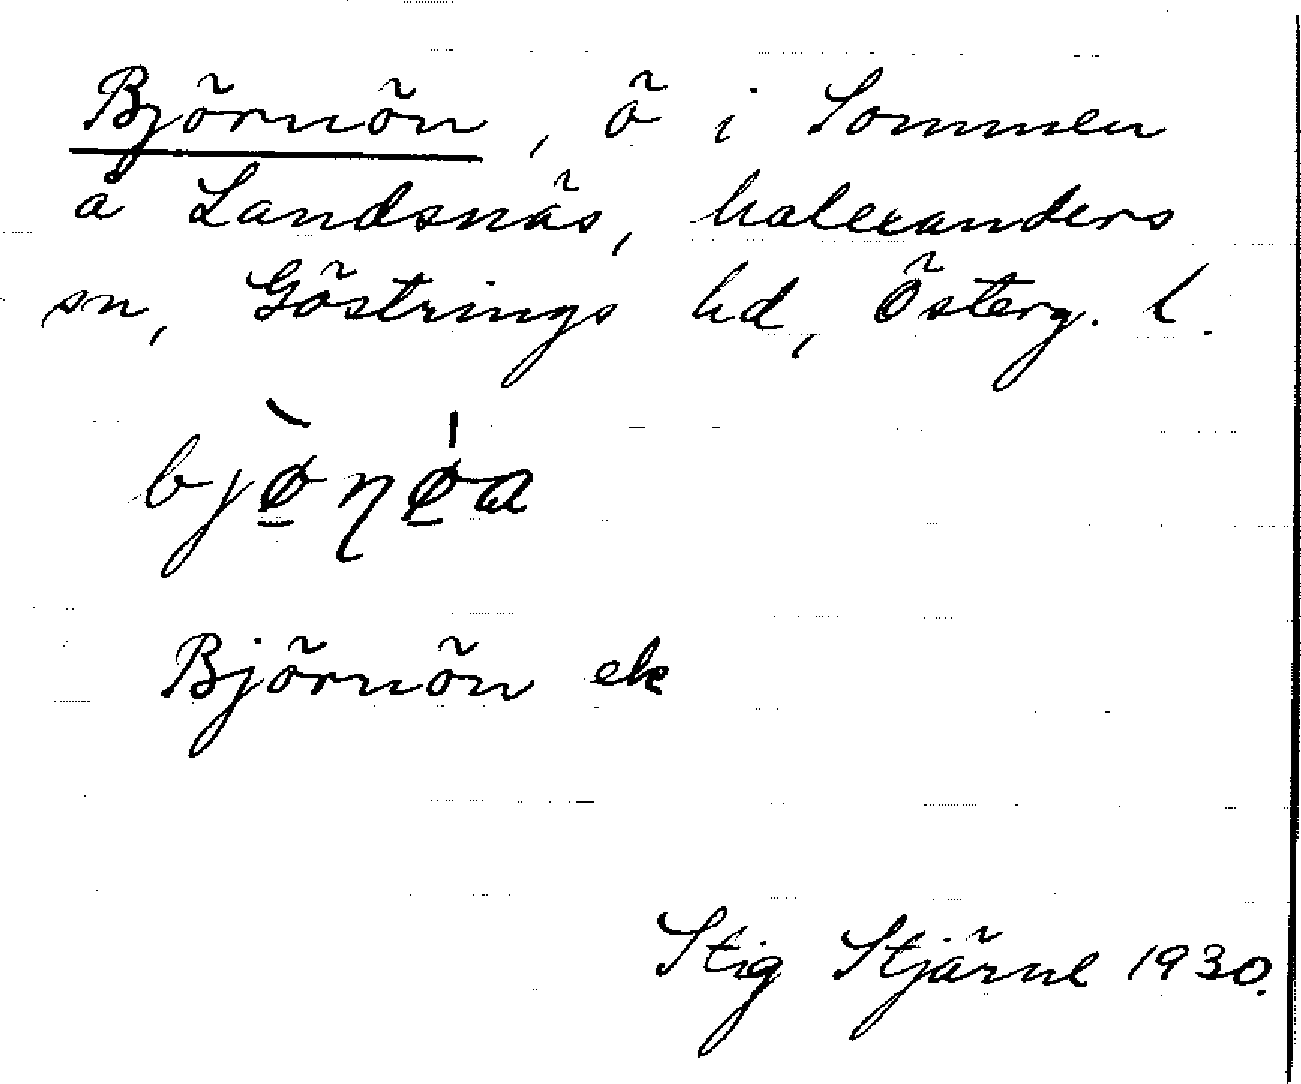 Björnön, ö i Sommen
å Landsnäs, Malexanders
sn, Göstrings hd, Österg. l.
bjø̲̀ꞃǿ̲a
Björnön ek
Stig Stjärne 1930.